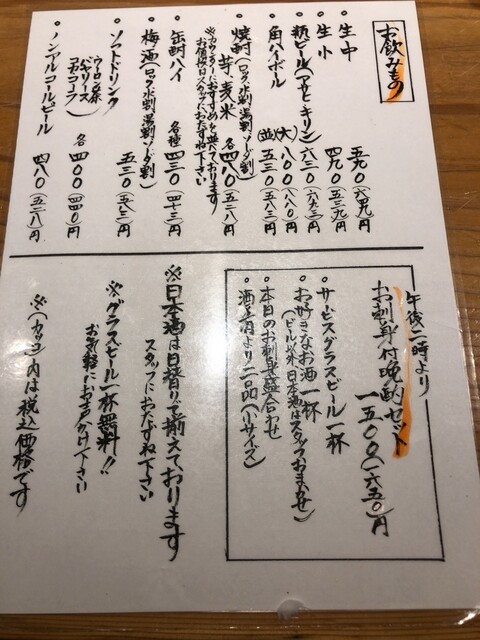 お飲みもの
生中 五九〇(六四九)円
生小 四九〇(五三九)円
瓶ビール(アサヒ・キリン) 六三〇(六九三)円
角ハイボール (大)八〇〇(八八〇)円
(並)五三〇(五八三)円
焼酎(ロック・水割・湯割・ソーダ割)
芋・麦・米 各四八〇(五二八)円
※カウンターにおすすめを並べております
お値段はスタッフにおたずね下さい
缶酎ハイ 各種四三〇(四七三)円
梅酒(ロック・水割・湯割・ソーダ割)
五三〇(五八三)円
ソフトドリンク
ウーロン茶
コカコーラ
各四〇〇(四四〇)円
ノンアルコールビール 四八〇(五二八)円
午後二時より
お刺身付晩酌セット
一五〇〇(一六五〇)円
サービスグラスビール一杯
お好きなお酒一杯
(ビール以外、日本酒はスタッフおまかせ)
本日のお刺身盛合わせ
酒肴より一品(ハーサイズ)
※日本酒は日替りで揃えております
スタッフにおたずね下さい
※グラスビール一杯無料!!
お気軽にお声かけ下さい
※(カッコ)内は税込価格です